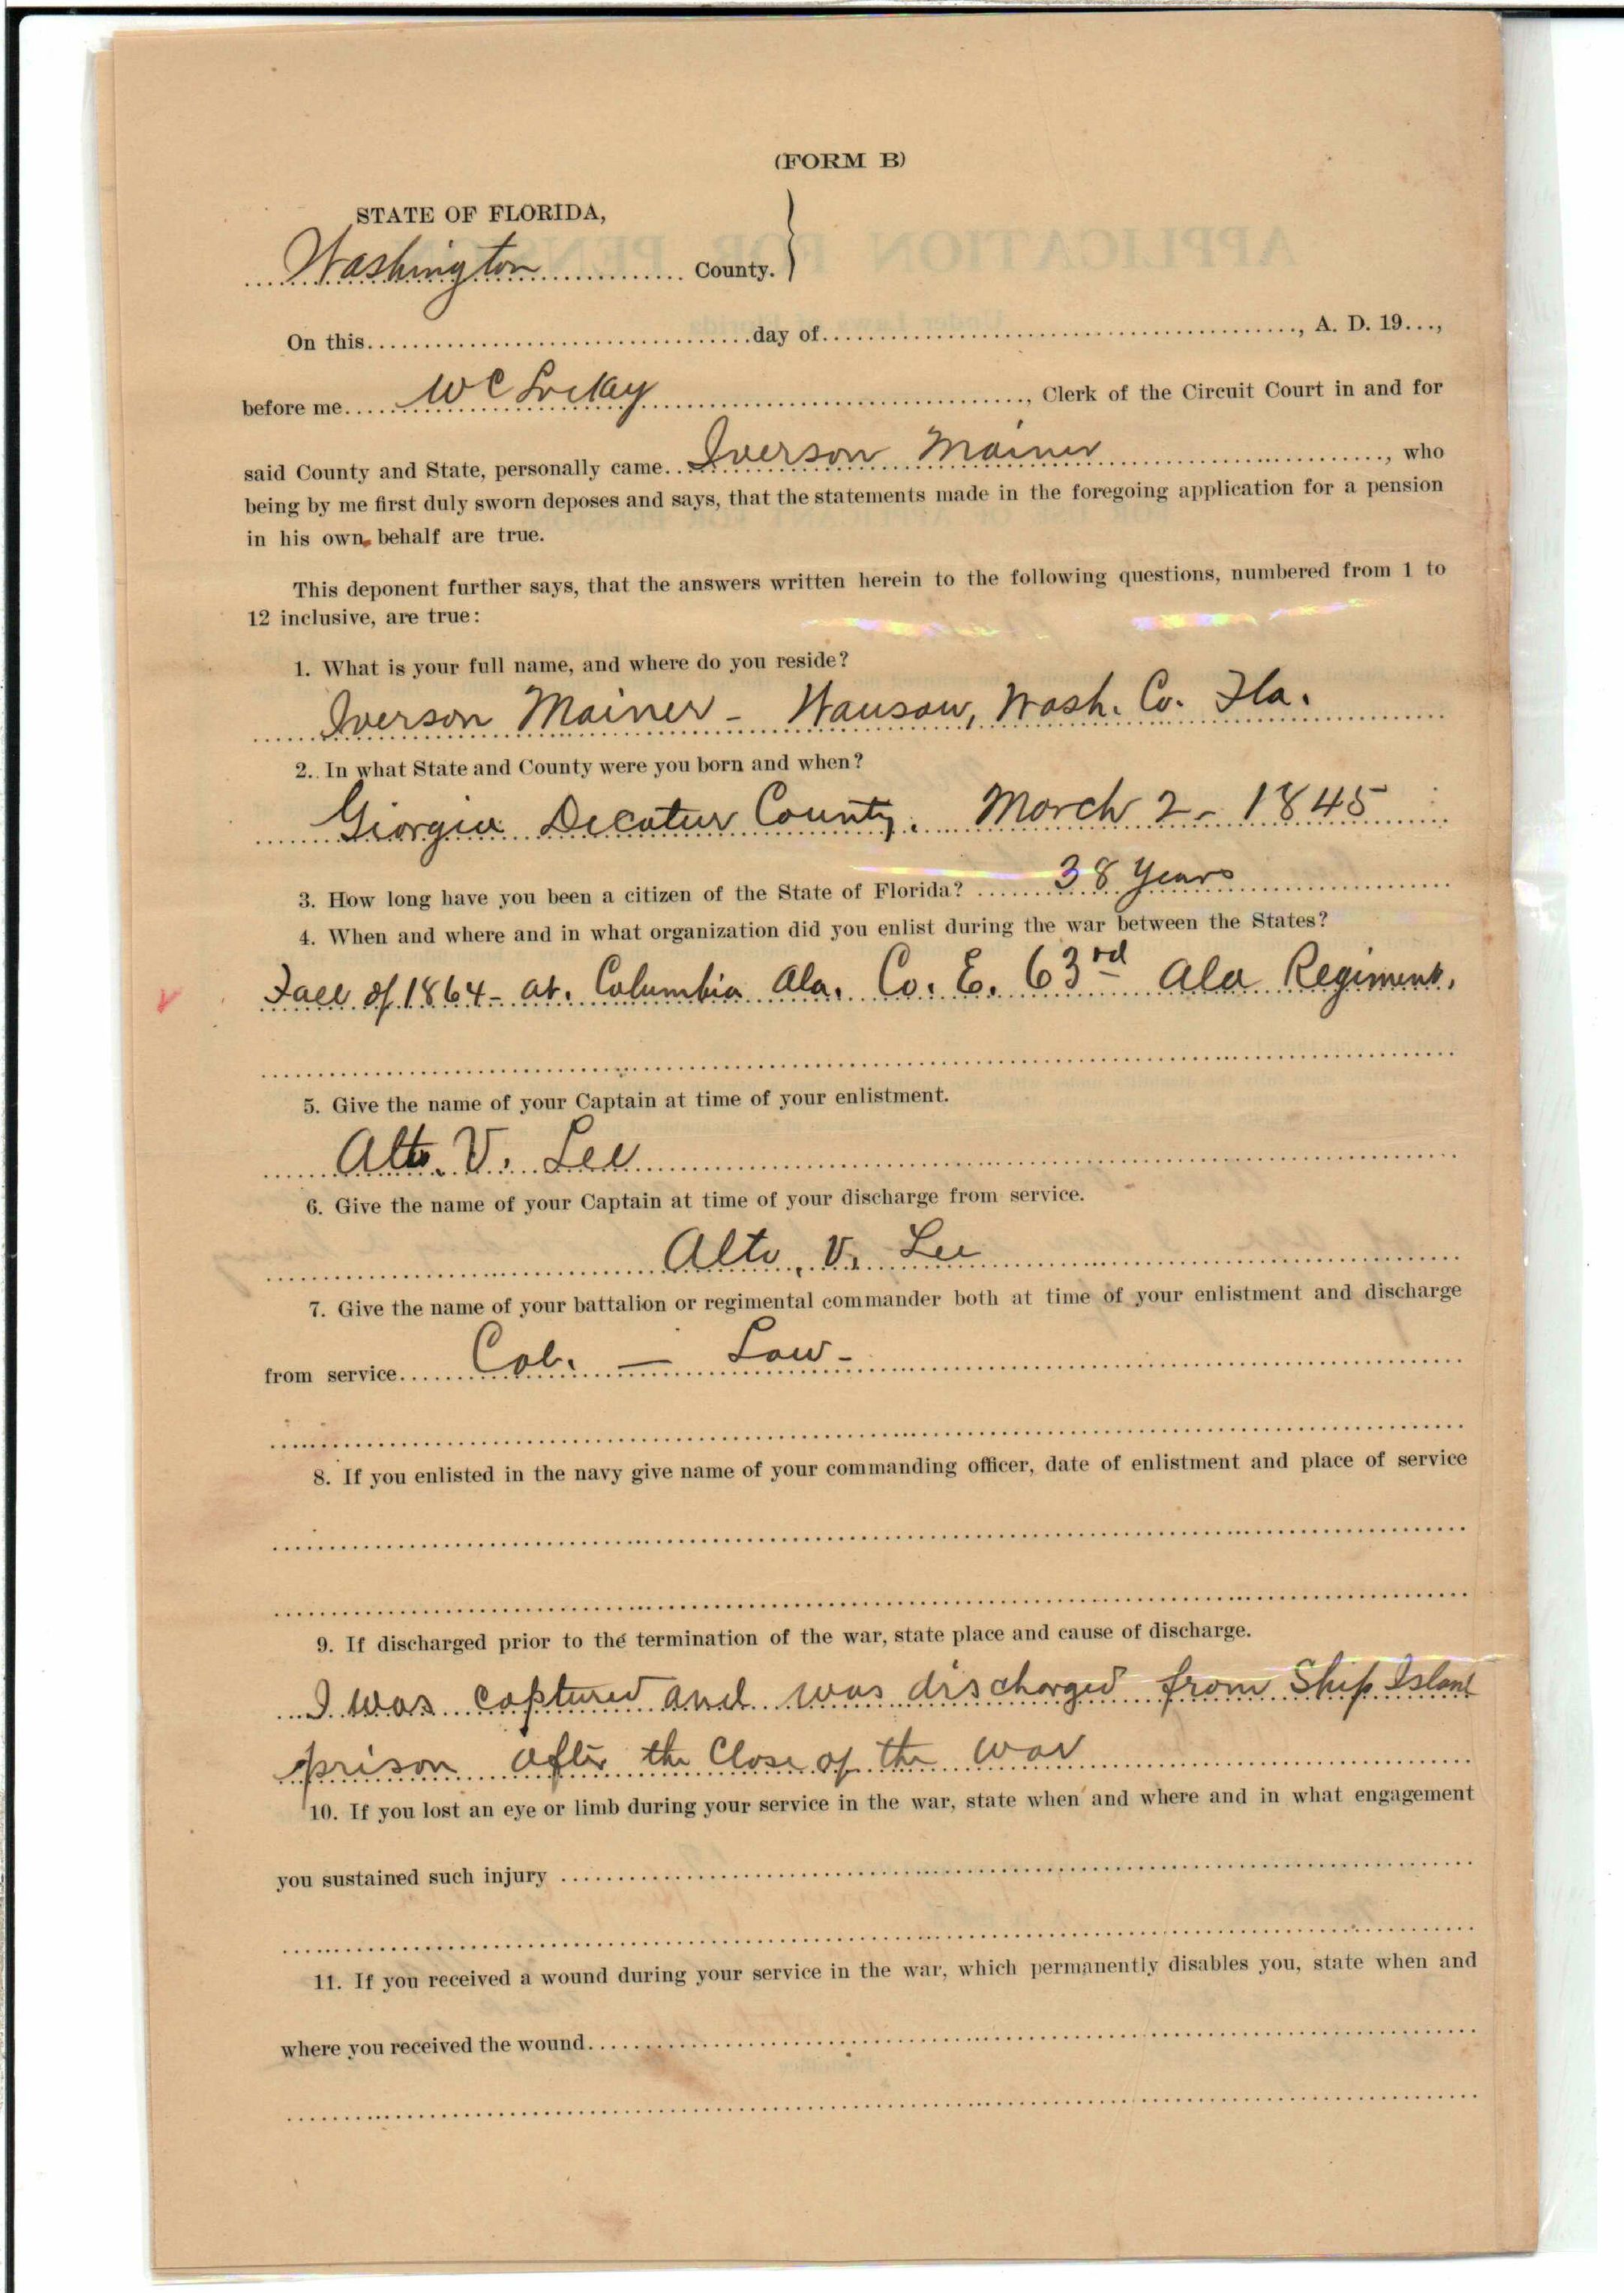 (FORM B)
STATE OF FLORIDA,
Washington County.
On this day of , A. D. 19...,
before me W C Lockey , Clerk of the Circuit Court in and for
said County and State, personally came Iverson Mainer , who
being by me first duly sworn deposes and says, that the statements made in the foregoing application for a pension
in his own behalf are true.
This deponent further says, that the answers written herein to the following questions, numbered from 1 to
12 inclusive, are true:
1. What is your full name, and where do you reside?
Iverson Mainer - Wausau, Wash. Co. Fla.
2. In what State and County were you born and when?
Georgia Decatur County. March 2 - 1845
3. How long have you been a citizen of the State of Florida? 38 Years
4. When and where and in what organization did you enlist during the war between the States?
Fall of 1864 - at. Columbia Ala. Co. E. 63rd Ala Regiment.
5. Give the name of your Captain at time of your enlistment.
Alto. V. Lee
6. Give the name of your Captain at time of your discharge from service.
Alto. V. Lee
7. Give the name of your battalion or regimental commander both at time of your enlistment and discharge
from service Col. — Law -
8. If you enlisted in the navy give name of your commanding officer, date of enlistment and place of service
9. If discharged prior to the termination of the war, state place and cause of discharge.
I was captured and was discharged from Ship Island
prison after the Close of the War
10. If you lost an eye or limb during your service in the war, state when and where and in what engagement
you sustained such injury
11. If you received a wound during your service in the war, which permanently disables you, state when and
where you received the wound